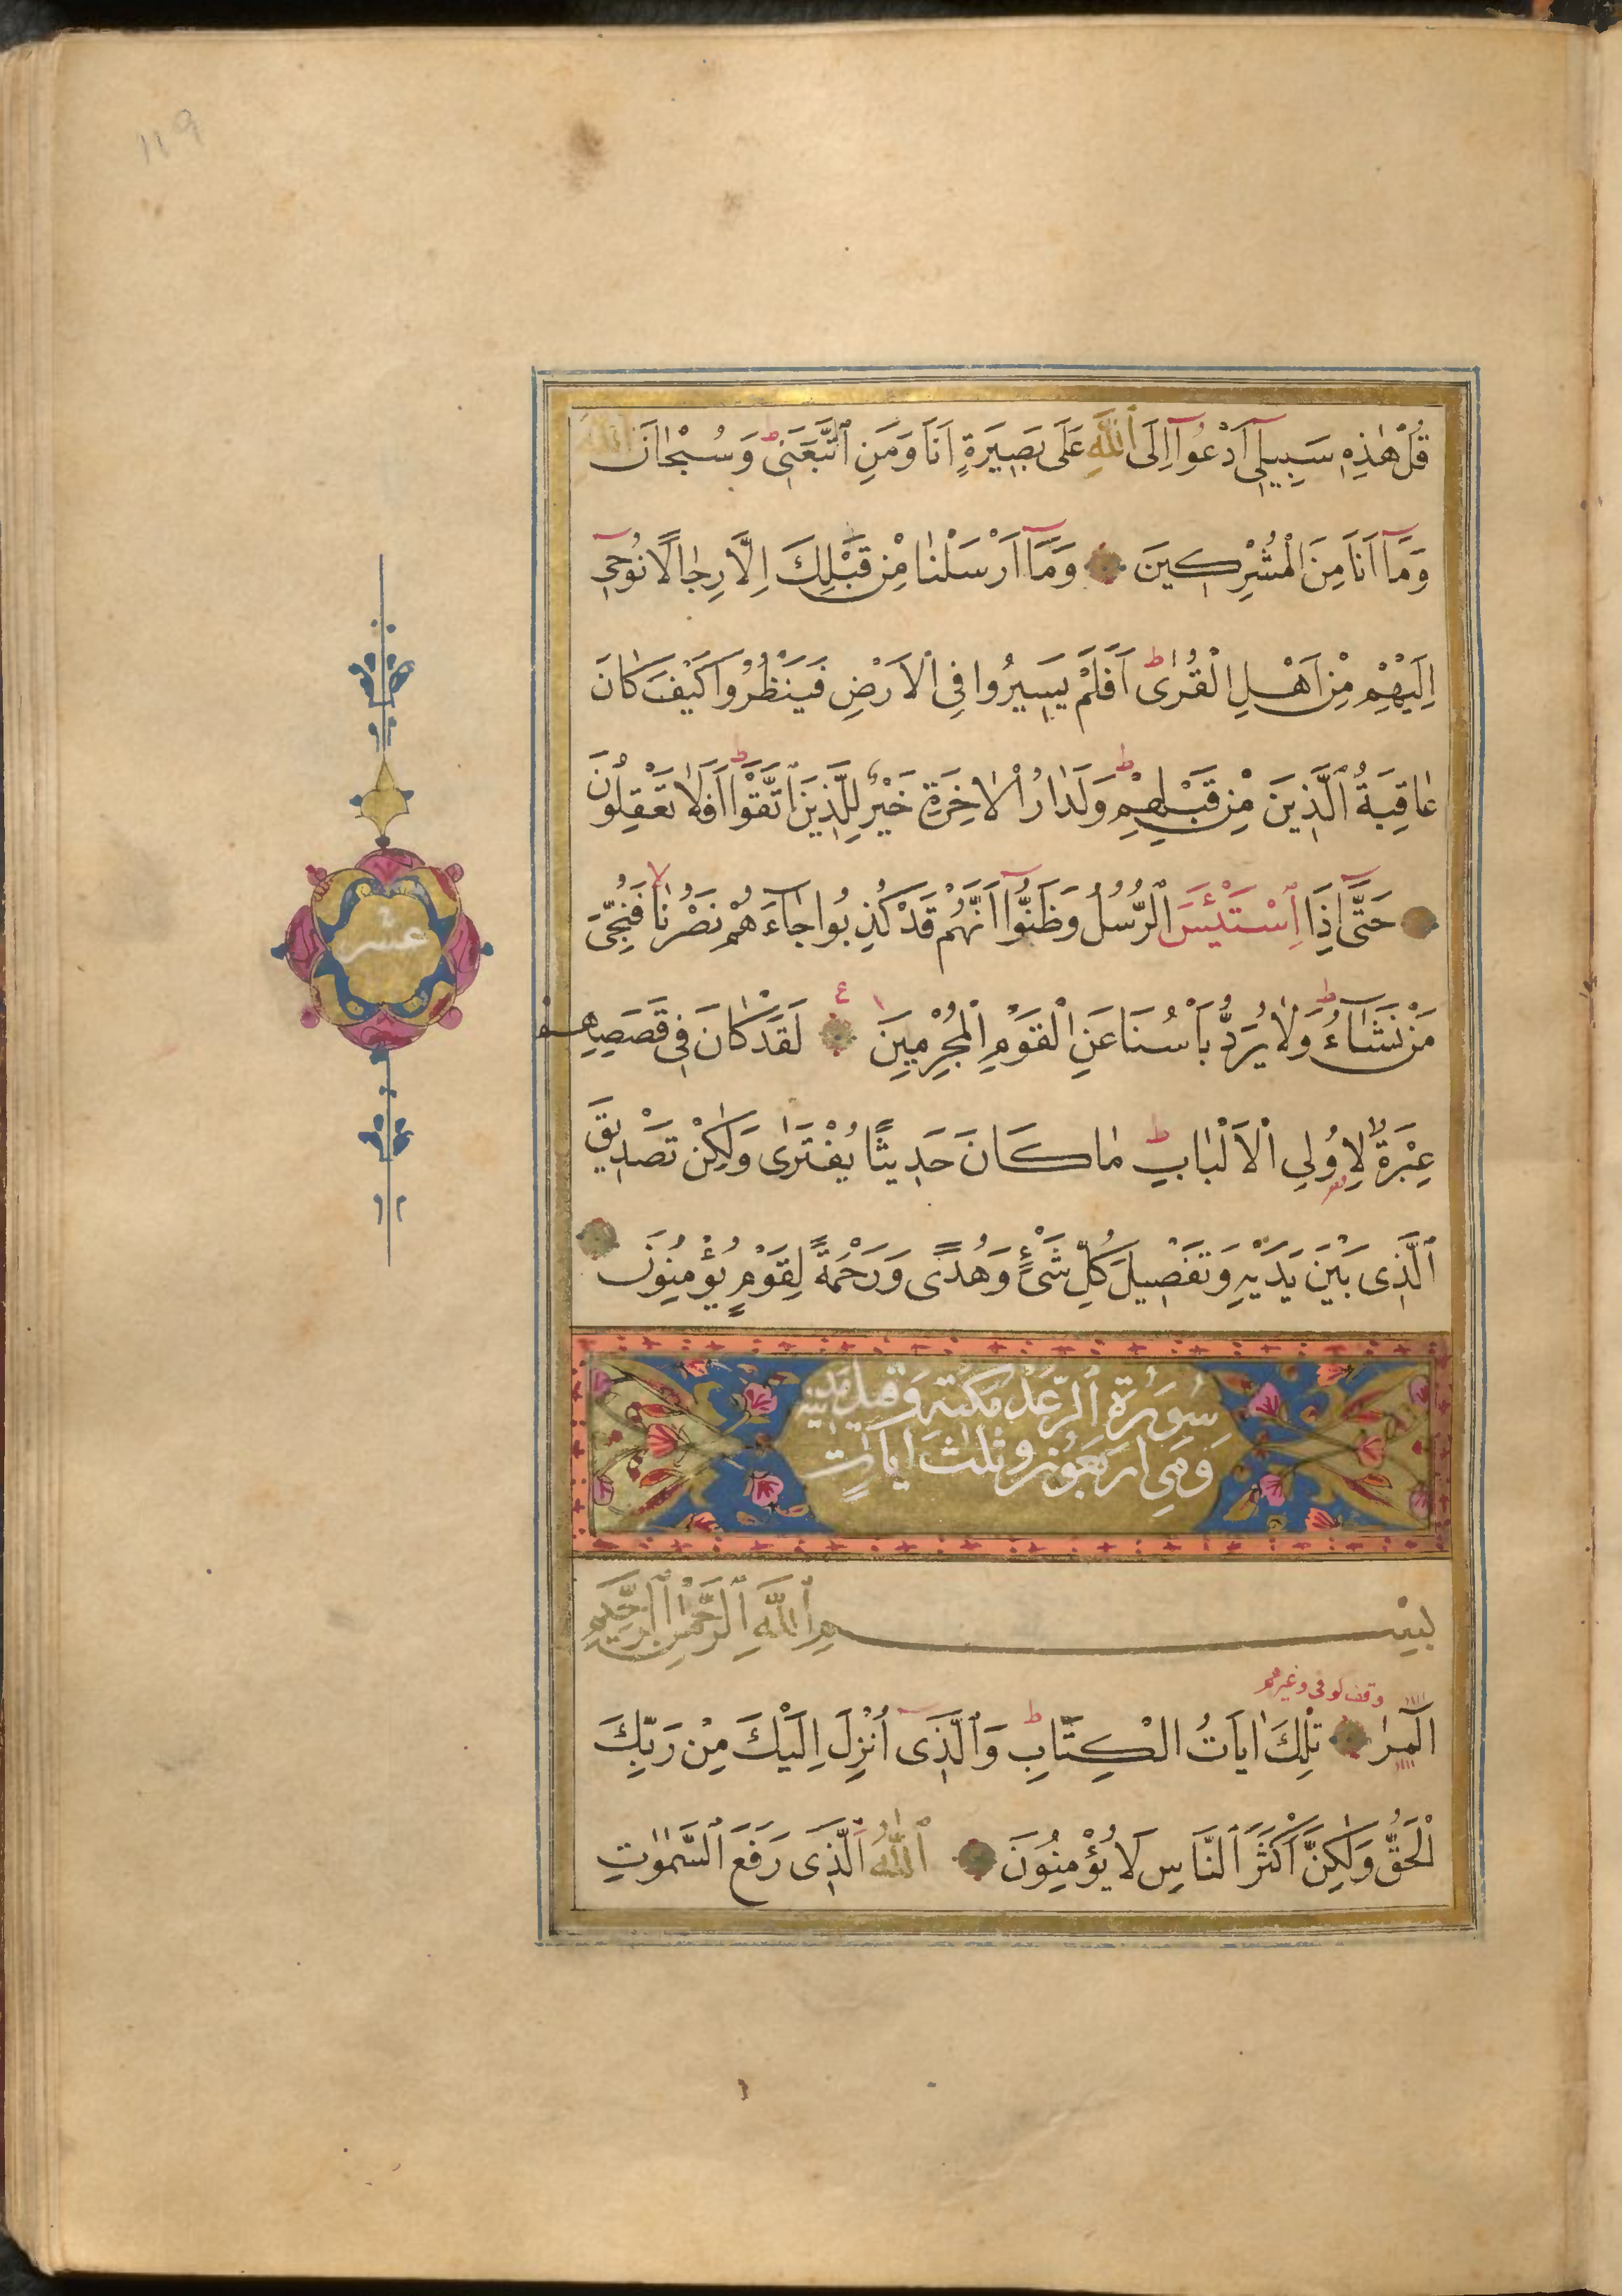 119
قُلْ هٰذِهٖ سَبٖيلٖٓى اَدْعُوٓا اِلَى ٱللّٰهِ عَلٰى بَصٖيرَةٍ اَنَا وَمَنِ ٱتَّبَعَنٖى ط وَسُبْحٰانَ ٱللّٰهِ
وَمَٓا اَنَا مِنَ الْمُشْرِكٖينَ وَمَٓا اَرْسَلْنٰا مِنْ قَبْلِكَ اِلَّا رِجٰالًا نُوحٖٓى
اِلَيْهِمْ مِنْ اَهْلِ الْقُرٰى ط اَفَلَمْ يَسٖيرُوا فِى الْاَرْضِ فَيَنْظُرُوا كَيْفَ كٰانَ
عٰاقِبَةُ ٱلَّذٖينَ مِنْ قَبْلِهِمْ ط وَلَدٰارُ الْاٰخِرَةِ خَيْرٌ لِلَّذٖينَ ٱتَّقَوْا ط اَفَلٰا تَعْقِلُونَ
حَتّٰٓى اِذَا ٱسْتَيْـَٔسَ ٱلرُّسُلُ وَظَنُّٓوا اَنَّهُمْ قَدْ كُذِبُوا جٰٓاءَهُمْ نَصْرُنٰا لا فَنُجِّىَ
مَنْ نَشٰٓاءُ ط وَلٰا يُرَدُّ بَاْسُنَا عَنِ الْقَوْمِ الْمُجْرِمٖينَ ع لَقَدْ كٰانَ فٖى قَصَصِهِمْ
عِبْرَةٌ لِاُولِى الْاَلْبٰابِ ط مٰا كَانَ حَدٖيثًا يُفْتَرٰى وَلٰكِنْ تَصْدٖيقَ
ٱلَّذٖى بَيْنَ يَدَيْهِ وَتَفْصٖيلَ كُلِّ شَىْءٍ وَهُدًى وَرَحْمَةً لِقَوْمٍ يُؤْمِنُونَ
عشر
سُورَةُ ٱلرَّعْدِ مَكّيّة وَقيلَ مَدنيّة
وَهِىَ اربَعُون وثلٰث ايٰاتٍ
بِسْمِ ٱللّٰهِ ٱلرَّحْمٰنِ ٱلرَّحيمِ
وقف كوفى وغيرهم
الٓمٓرٰ تِلْكَ اٰيَاتُ الْكِتَابِ ط وَٱلَّذٖٓى اُنْزِلَ اِلَيْكَ مِنْ رَبِّكَ
الْحَقُّ وَلٰكِنَّ اَكْثَرَ ٱلنَّاسِ لَا يُؤْمِنُونَ ٱللّٰهُ ٱلَّذٖى رَفَعَ ٱلسَّمٰوٰتِ